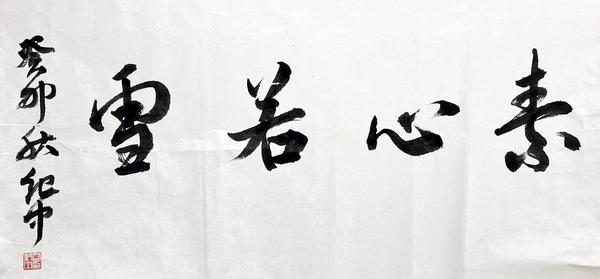 素心若雪
癸卯秋纪中